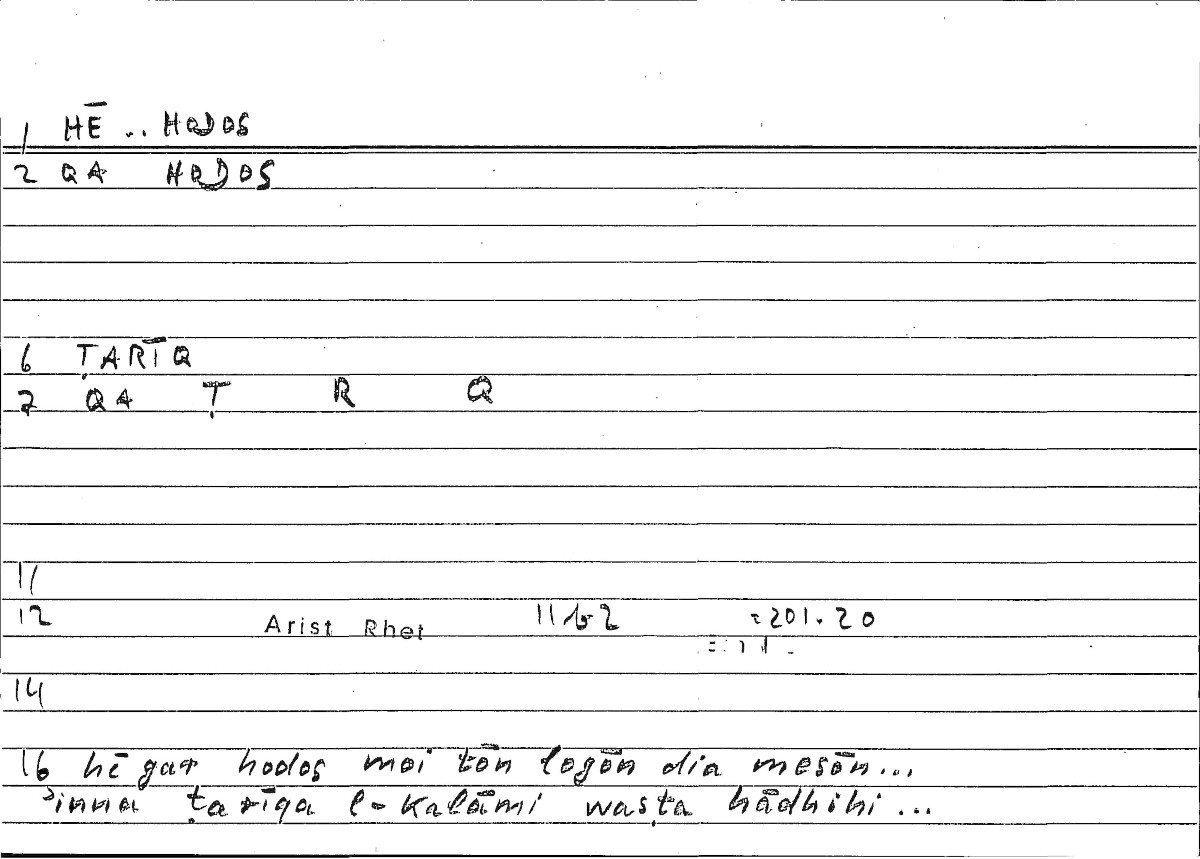 1 HĒ .. HODOS
2 QA HODOS
6 ṬARĪQ
7 QA Ṭ R Q
11
12 Arist Rhet 11b2 =201.20
14
16 hē gar hodos moi tōn logōn dia mesōn...
ʾinna ṭarīqa l-kalāmi wasṭa hādhihi...